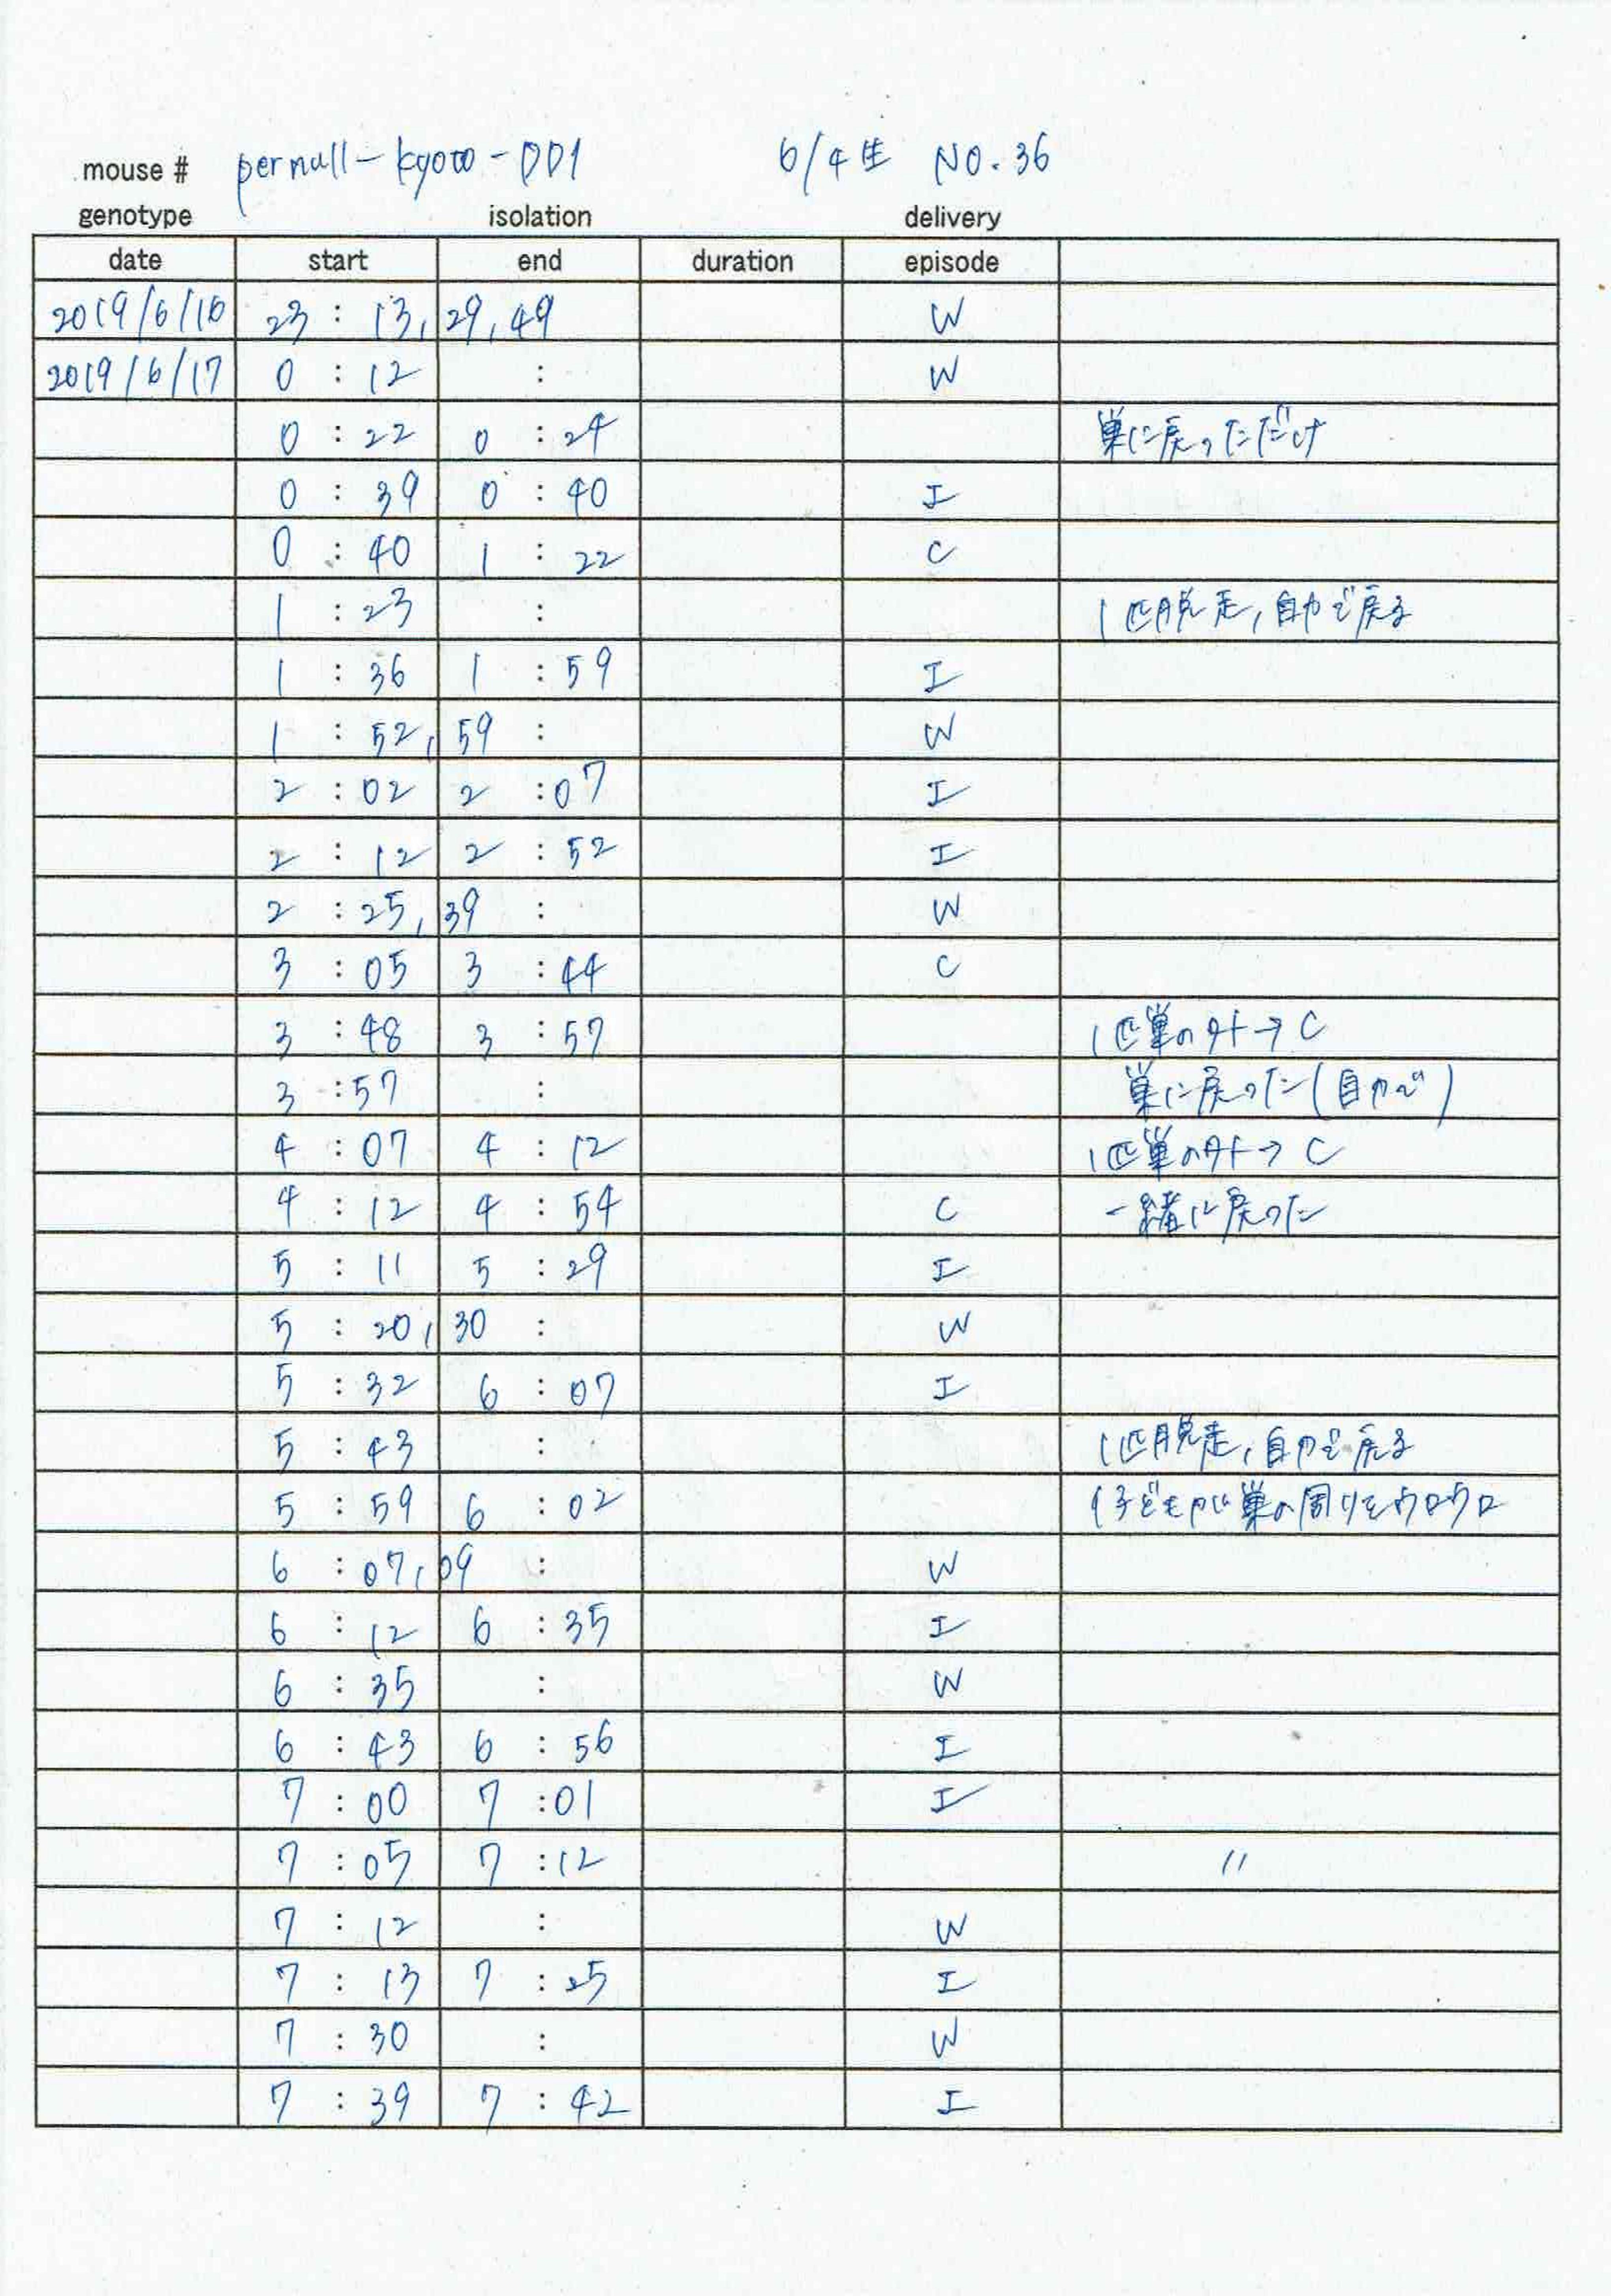 mouse # pernull-kyoto-001 6/4生 NO.36
genotype isolation delivery
date start end duration episode
2019/6/16 23 : 13, 29, 49 W
2019/6/17 0 : 12 : W
0 : 22 0 : 24 巣に戻っただけ
0 : 39 0 : 40 I
0 : 40 1 : 22 C
1 : 23 : 1匹脱走, 自力で戻る
1 : 36 1 : 59 I
1 : 52, 59 : W
2 : 02 2 : 07 I
2 : 12 2 : 52 I
2 : 25, 39 : W
3 : 05 3 : 44 C
3 : 48 3 : 57 1匹巣の外→C
3 : 57 : 巣に戻った(自力で)
4 : 07 4 : 12 1匹巣の外→C
4 : 12 4 : 54 C 一緒に戻った
5 : 11 5 : 29 I
5 : 20, 30 : W
5 : 32 6 : 07 I
5 : 43 : 1匹脱走, 自力で戻る
5 : 59 6 : 02 子どもが巣の周りをウロウロ
6 : 07, 09 : W
6 : 12 6 : 35 I
6 : 35 : W
6 : 43 6 : 56 I
7 : 00 7 : 01 I
7 : 05 7 : 12 〃
7 : 12 : W
7 : 13 7 : 25 I
7 : 30 : W
7 : 39 7 : 42 I